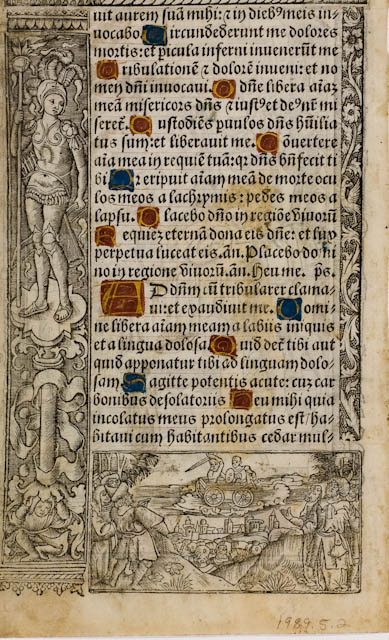 uit aurem suā mihi: ⁊ in dieb⁹ meis in-
uocabo. Circundederunt me dolores
mortis: et picula inferni inuenerūt me
Tribulationē ⁊ dolorē inueni: et no
men dñi inuocaui. O dñe libera aīaʒ
meā misericors dñs ⁊ iust⁹ et de⁹ nr̄ mi
seret̄. Custodiēs paruulos dñs hūilia
tus sum: et liberauit me. Cōuertere
aīa mea in requiē tuā: qr dñs bn̄fecit ti
bi. Q eripuit aīam meā de morte ocu
los meos a lachrymis: pedes meos a
lapsu. Placebo dñō in regiōe viuorū
Requiez eternā dona eis dñe: et lux
perpetua luceat eis. añ. Placebo domi
no in regione viuorū. añ. Heu me. ps.
AD dñm cū tribularer clama-
ui: et exaudiuit me. Domi-
ne libera aīam meam a labiis iniquis
et a lingua dolosa. Quid det̄ tibi aut
quid apponatur tibi ad linguam dolo-
sam. Sagitte potentis acute: cuʒ car
bonibus desolatoriis Heu mihi quia
incolatus meus prolongatus est/ha-
bitaui cum habitantibus cedar mul-
1984.5.2